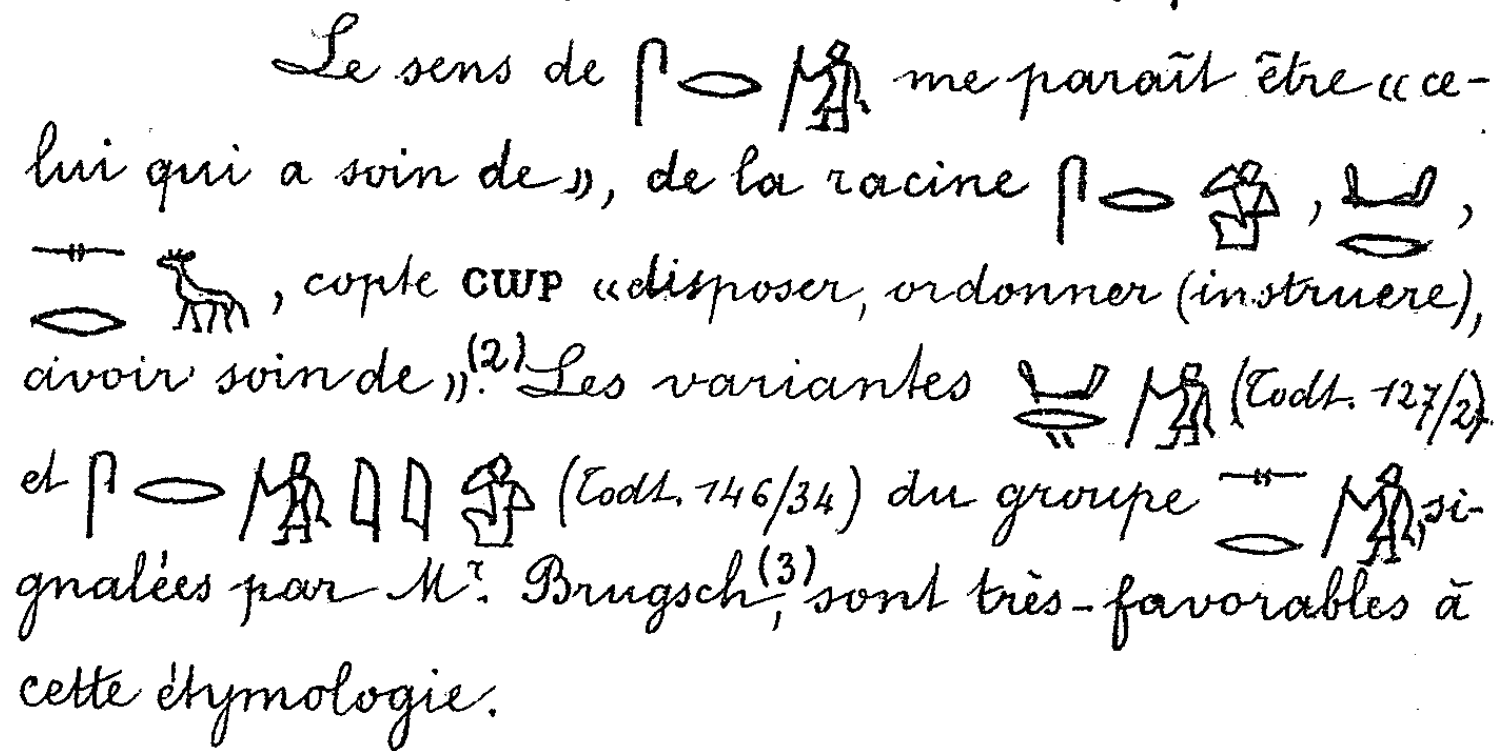 Le sens de 𓋴𓂋𓀙 me paraît être « ce-
lui qui a soin de », de la racine 𓋴𓂋𓀁, 𓂋,
𓊃𓂋, copte ⲥⲱⲣ « disposer, ordonner (instruere),
avoir soin de ».(2) Les variantes 𓂋𓏭𓀙 (Todt. 127/2)
et 𓋴𓂋𓀙𓇋𓇋𓀁 (Todt. 146/34) du groupe 𓊃𓂋𓀙, si-
gnalées par Mr. Brugsch,(3) sont très-favorables à
cette étymologie.